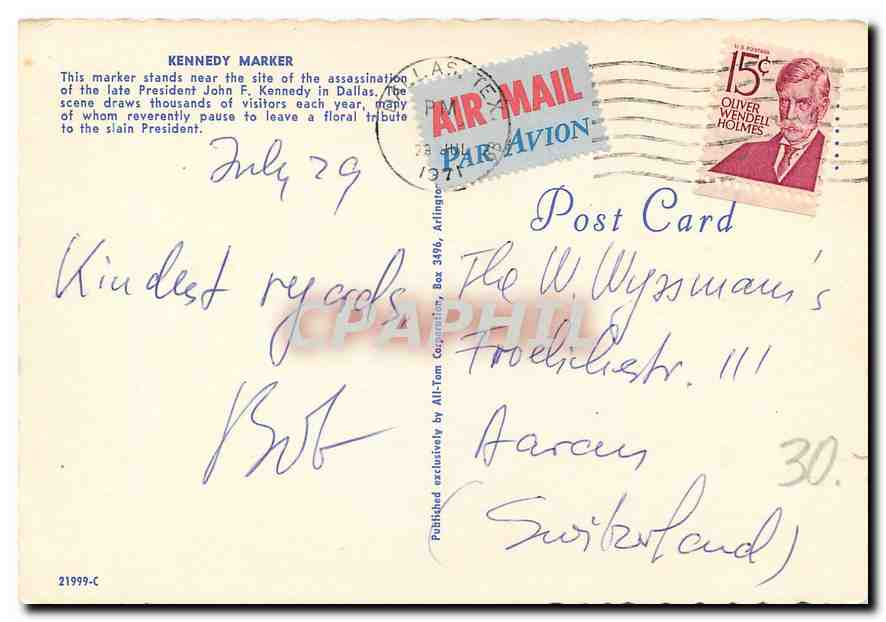 KENNEDY MARKER
This marker stands near the site of the assassination
of the late President John F. Kennedy in Dallas. The
scene draws thousands of visitors each year, many
of whom reverently pause to leave a floral tribute
to the slain President.
July 29
Kindest regards,
Bob
21999-C
Published exclusively by All-Tom Corporation, Box 3496, Arlington
DALLAS, TEX.
PM
29 JUL
1971
AIR MAIL
PAR AVION
U.S. POSTAGE
15¢
OLIVER
WENDELL
HOLMES
Post Card
The W. Wyssmann's
111
(Switzerland)
30.-
CPAPHIL